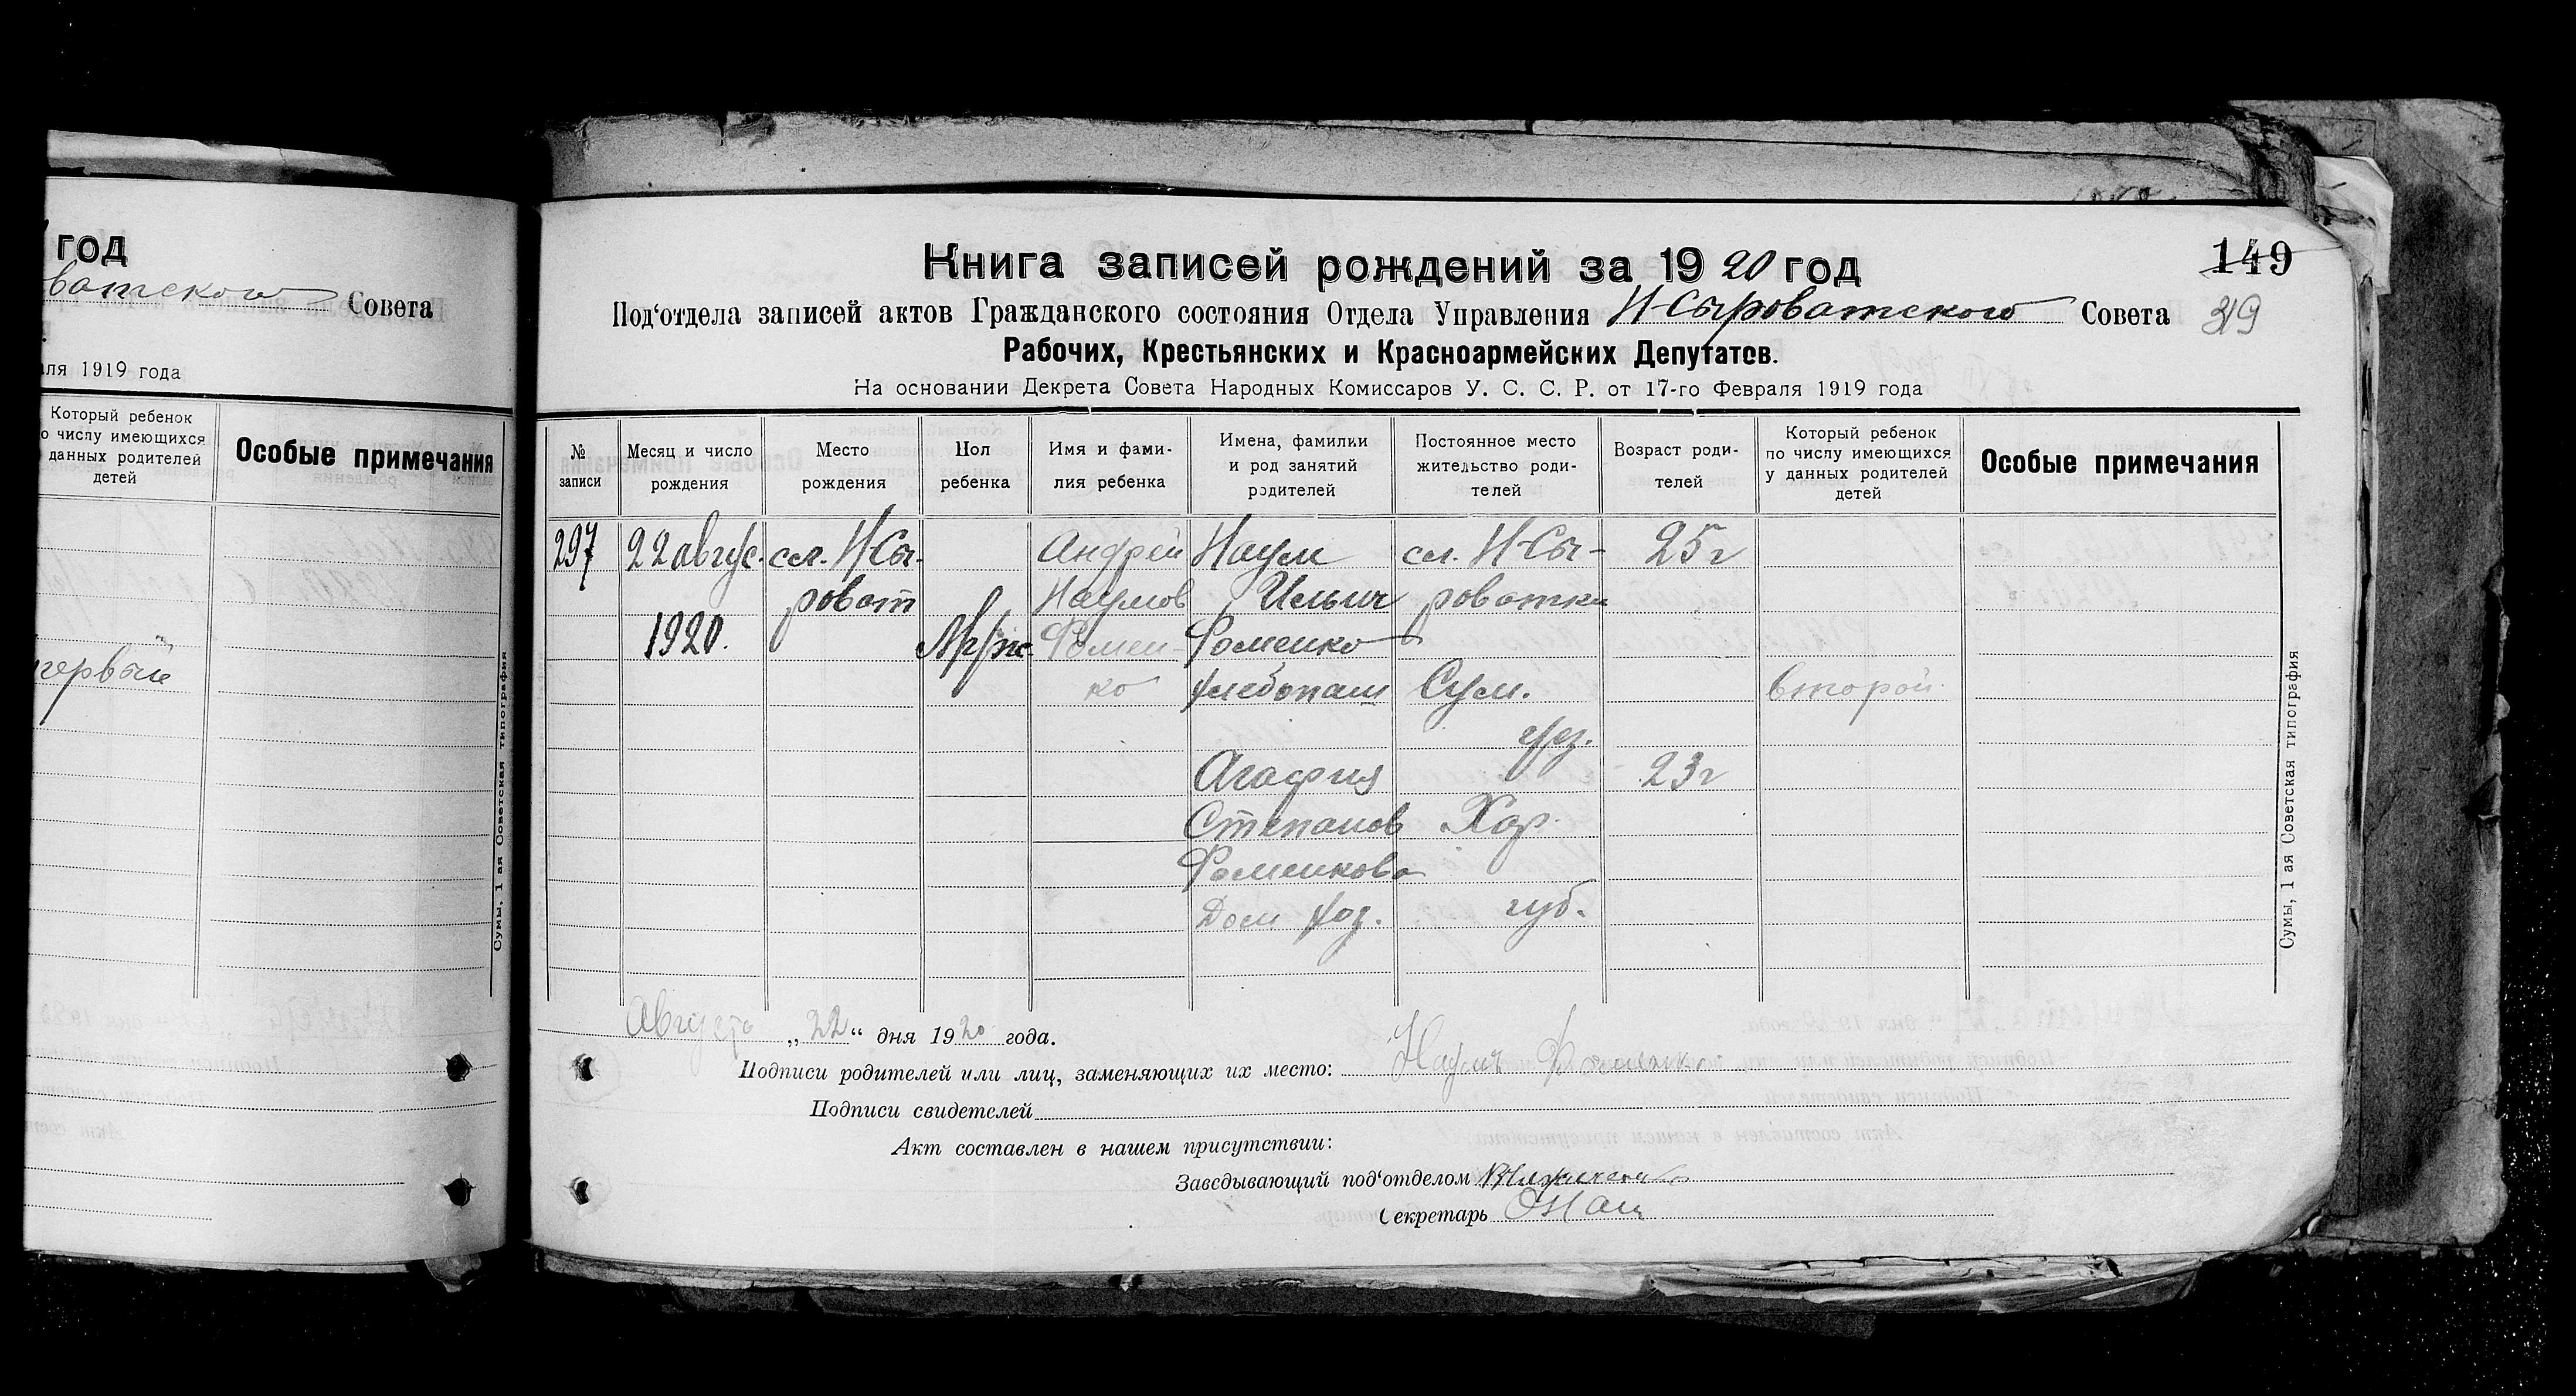 год
ватского Совета
ля 1919 года
Который ребенок
о числу имеющихся
данных родителей
детей
Особые примечания
первый
Сумы, 1 ая Советская типография
149
319
Книга записей рождений за 1920 год
Под‘отдела записей актов Гражданского состояния Отдела Управления Н-Сыроватского Совета
Рабочих, Крестьянских и Красноармейских Депутатов.
На основании Декрета Совета Народных Комиссаров У. С. С. Р. от 17-го Февраля 1919 года
№
записи
Месяц и число
рождения
Место
рождения
Пол
ребенка
Имя и фами-
лия ребенка
Имена, фамилии
и род занятий
родителей
Постоянное место
жительство роди-
телей
Возраст роди-
телей
Который ребенок
по числу имеющихся
у данных родителей
детей
Особые примечания
297
22 авгус.
1920.
сл. Н-Сы-
роват
Муж.
Андрей
Наумов
Фомен-
ко
Наум
Ильич
Фоменко
хлебопаш
Агафия
Степанов
Фоменкова
Дом хоз.
сл. Н-Сы-
роватки
Сум.
уез.
Хар.
губ.
25 г
23 г
второй
Августа „22“ дня 1920 года.
Подписи родителей или лиц, заменяющих их место: Наумъ Фоменко
Подписи свидетелей
Акт составлен в нашем присутствии:
Заведывающий под‘отделом
Секретарь
Сумы, 1 ая Советская типография